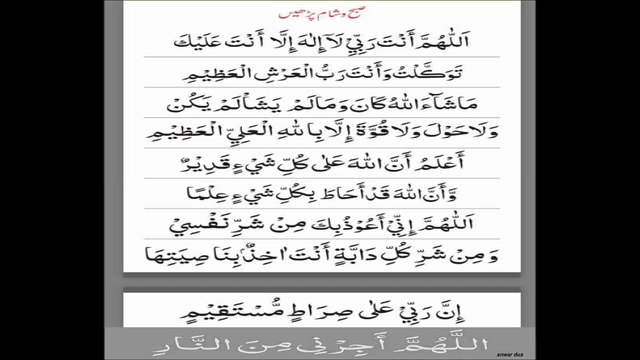 صبح و شام پڑھیں
اَللّٰهُمَّ أَنْتَ رَبِّيْ لَآ إِلٰهَ إِلَّا أَنْتَ عَلَيْكَ
تَوَكَّلْتُ وَأَنْتَ رَبُّ الْعَرْشِ الْعَظِيْمِ
مَا شَآءَ اللهُ كَانَ وَمَا لَمْ يَشَأْ لَمْ يَكُنْ
وَلَا حَوْلَ وَلَا قُوَّةَ إِلَّا بِاللهِ الْعَلِيِّ الْعَظِيْمِ
أَعْلَمُ أَنَّ اللهَ عَلٰى كُلِّ شَيْءٍ قَدِيْرٌ
وَّأَنَّ اللهَ قَدْ أَحَاطَ بِكُلِّ شَيْءٍ عِلْمًا
اَللّٰهُمَّ إِنِّيْ أَعُوْذُ بِكَ مِنْ شَرِّ نَفْسِيْ
وَمِنْ شَرِّ كُلِّ دَابَّةٍ أَنْتَ اٰخِذٌۢ بِنَاصِيَتِهَا
إِنَّ رَبِّيْ عَلٰى صِرَاطٍ مُّسْتَقِيْمٍ
اَللَّهُمَّ أَجِرْنِي مِنَ النَّارِ
anwar dua